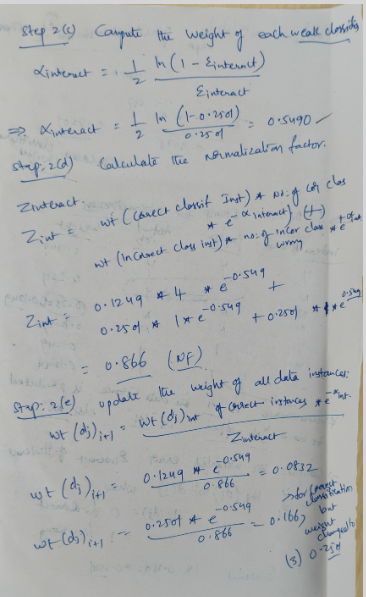 Step 2(c) Compute the weight of each weak classifier
αinteract = 1/2 ln (1 - εinteract) / εinteract
⇒ αinteract = 1/2 ln (1-0.2501) / 0.2501 = 0.5490
Step: 2(d) Calculate the normalization factor.
Zinteract.
Zint = wt (correct classif Inst) * no: of cor clas
* e^-αinteract} (+)
wt (incorrect class inst) * no: of incor class * e^+αint
wrong
Zint = 0.1249 * 4 * e^-0.549 +
0.2501 * 1 * e^-0.549 + 0.2501 * 1 * e^0.549
= 0.866 (NF)
Step: 2(e) update the weight of all data instances:
wt (dj)i+1 = wt (dj)int of correct instances * e^-αint. / Zinteract
wt (dj)i+1 = 0.1249 * e^-0.549 / 0.866 = 0.0832
wt (dj)i+1 = 0.2501 * e^-0.549 / 0.866 = 0.166,
for correct
classification
but
weight
changed to
(3) 0.2501